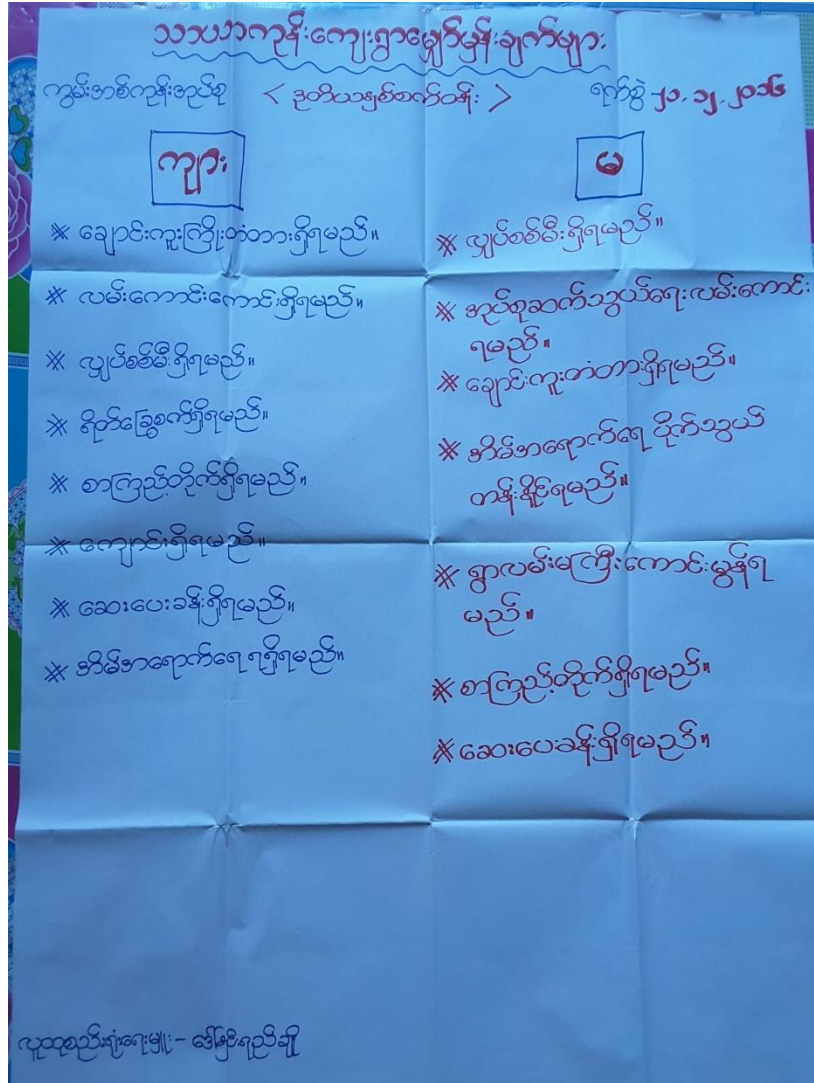 သာယာကုန်းကျေးရွာမျှော်မှန်းချက်များ
ကွမ်းအစ်ကုန်းအုပ်စု < ဒုတိယနှစ်စက်ဝန်း > ရက်စွဲ ၂၁.၁၂.၂၀၁၆
ကျား
※ ချောင်းကူးကြိုးတံတားရှိရမည်။
※ လမ်းကောင်းကောင်းရှိရမည်။
※ လျှပ်စစ်မီးရှိရမည်။
※ ရိတ်ခြွေစက်ရှိရမည်။
※ စာကြည့်တိုက်ရှိရမည်။
※ ကျောင်းရှိရမည်။
※ ဆေးပေးခန်းရှိရမည်။
※ အိမ်အရောက်ရေရရှိရမည်။
မ
※ လျှပ်စစ်မီးရှိရမည်။
※ အုပ်စုဆက်သွယ်ရေးလမ်းကောင်း
ရမည်။
※ ချောင်းကူးတံတားရှိရမည်။
※ အိမ်အရောက်ရေ ပိုက်သွယ်
တန်းနိုင်ရမည်။
※ ရွာလမ်းမကြီးကောင်းမွန်ရ
မည်။
※ စာကြည့်တိုက်ရှိရမည်။
※ ဆေးပေးခန်းရှိရမည်။
လူထုစည်းရုံးရေးမှူး – ဒေါ်ဖြိုးရည်ချို